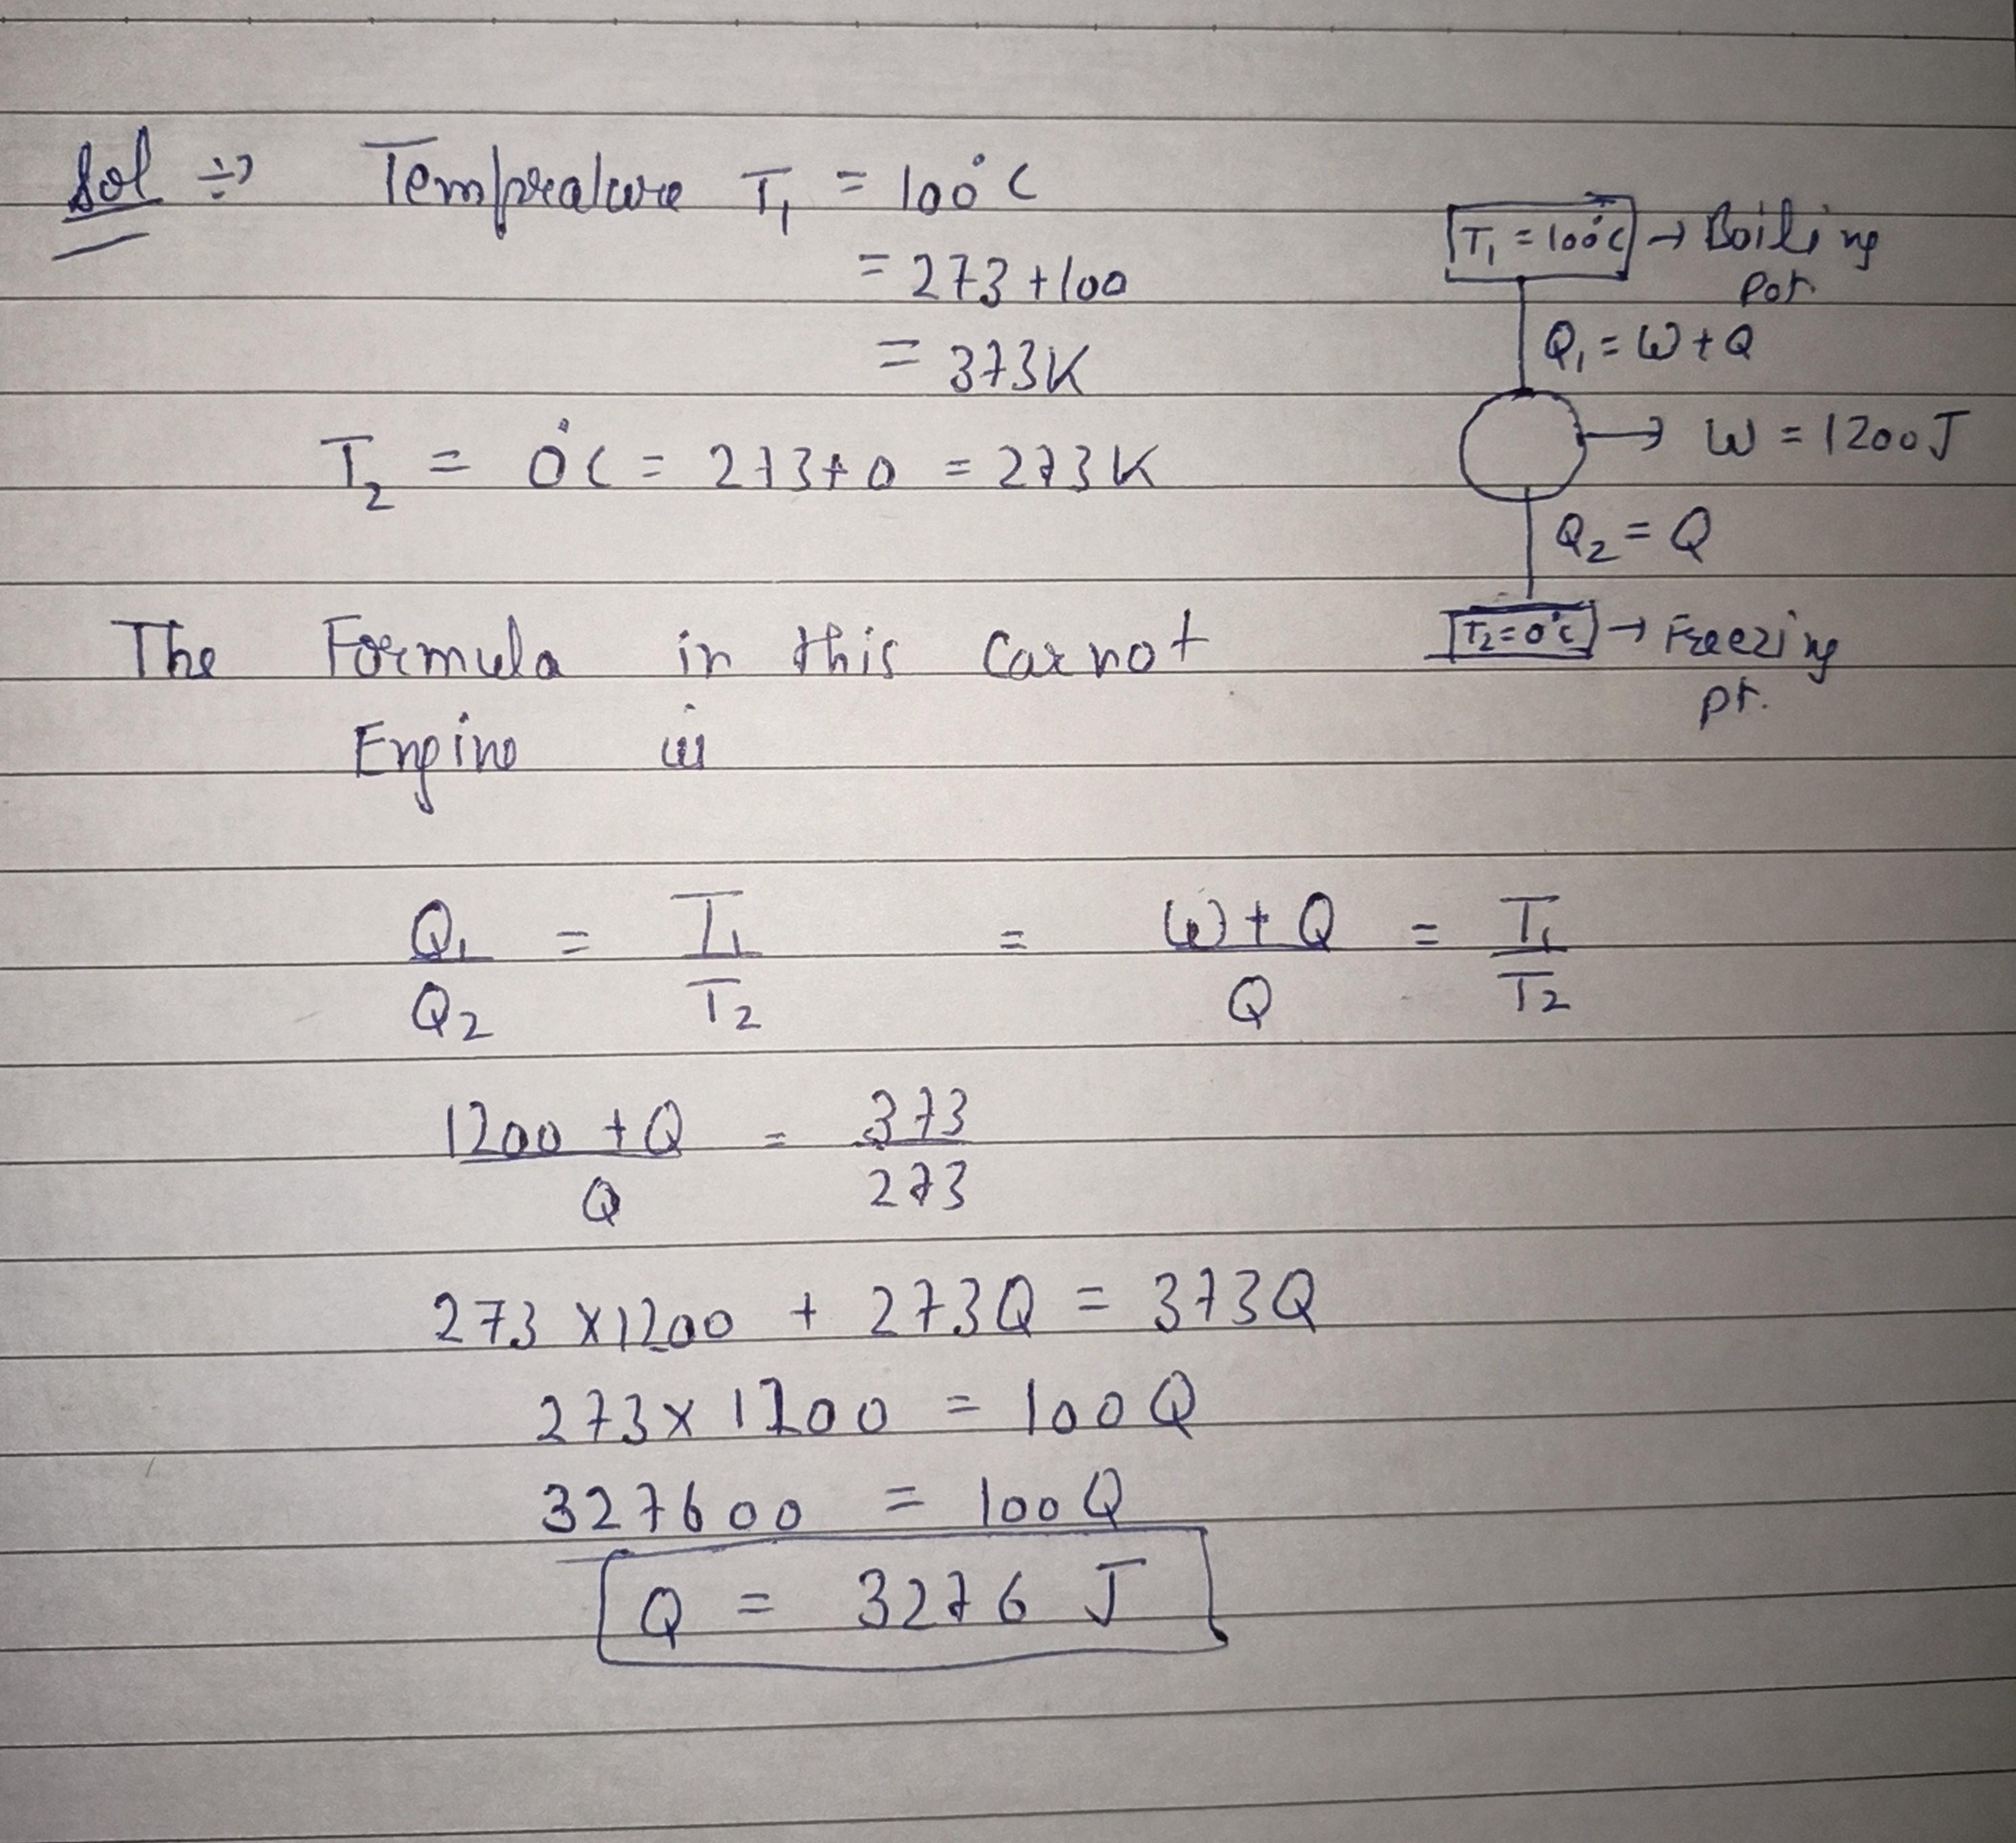 Sol ÷> Tempreature T₁ = 100°C
= 273 + 100
= 373K
T₂ = 0°C = 273+0 = 273K
T₁ = 100°C → Boiling
Pot.
Q₁ = W + Q
→ W = 1200J
Q₂ = Q
T₂ = 0°C → Freezing
pt.
The Formula in this Carnot
Engine is
Q₁/Q₂ = T₁/T₂ = W + Q/Q = T₁/T₂
1200 + Q/Q = 373/273
273 x 1200 + 273Q = 373Q
273 x 1200 = 100Q
327600 = 100Q
Q = 3276 J